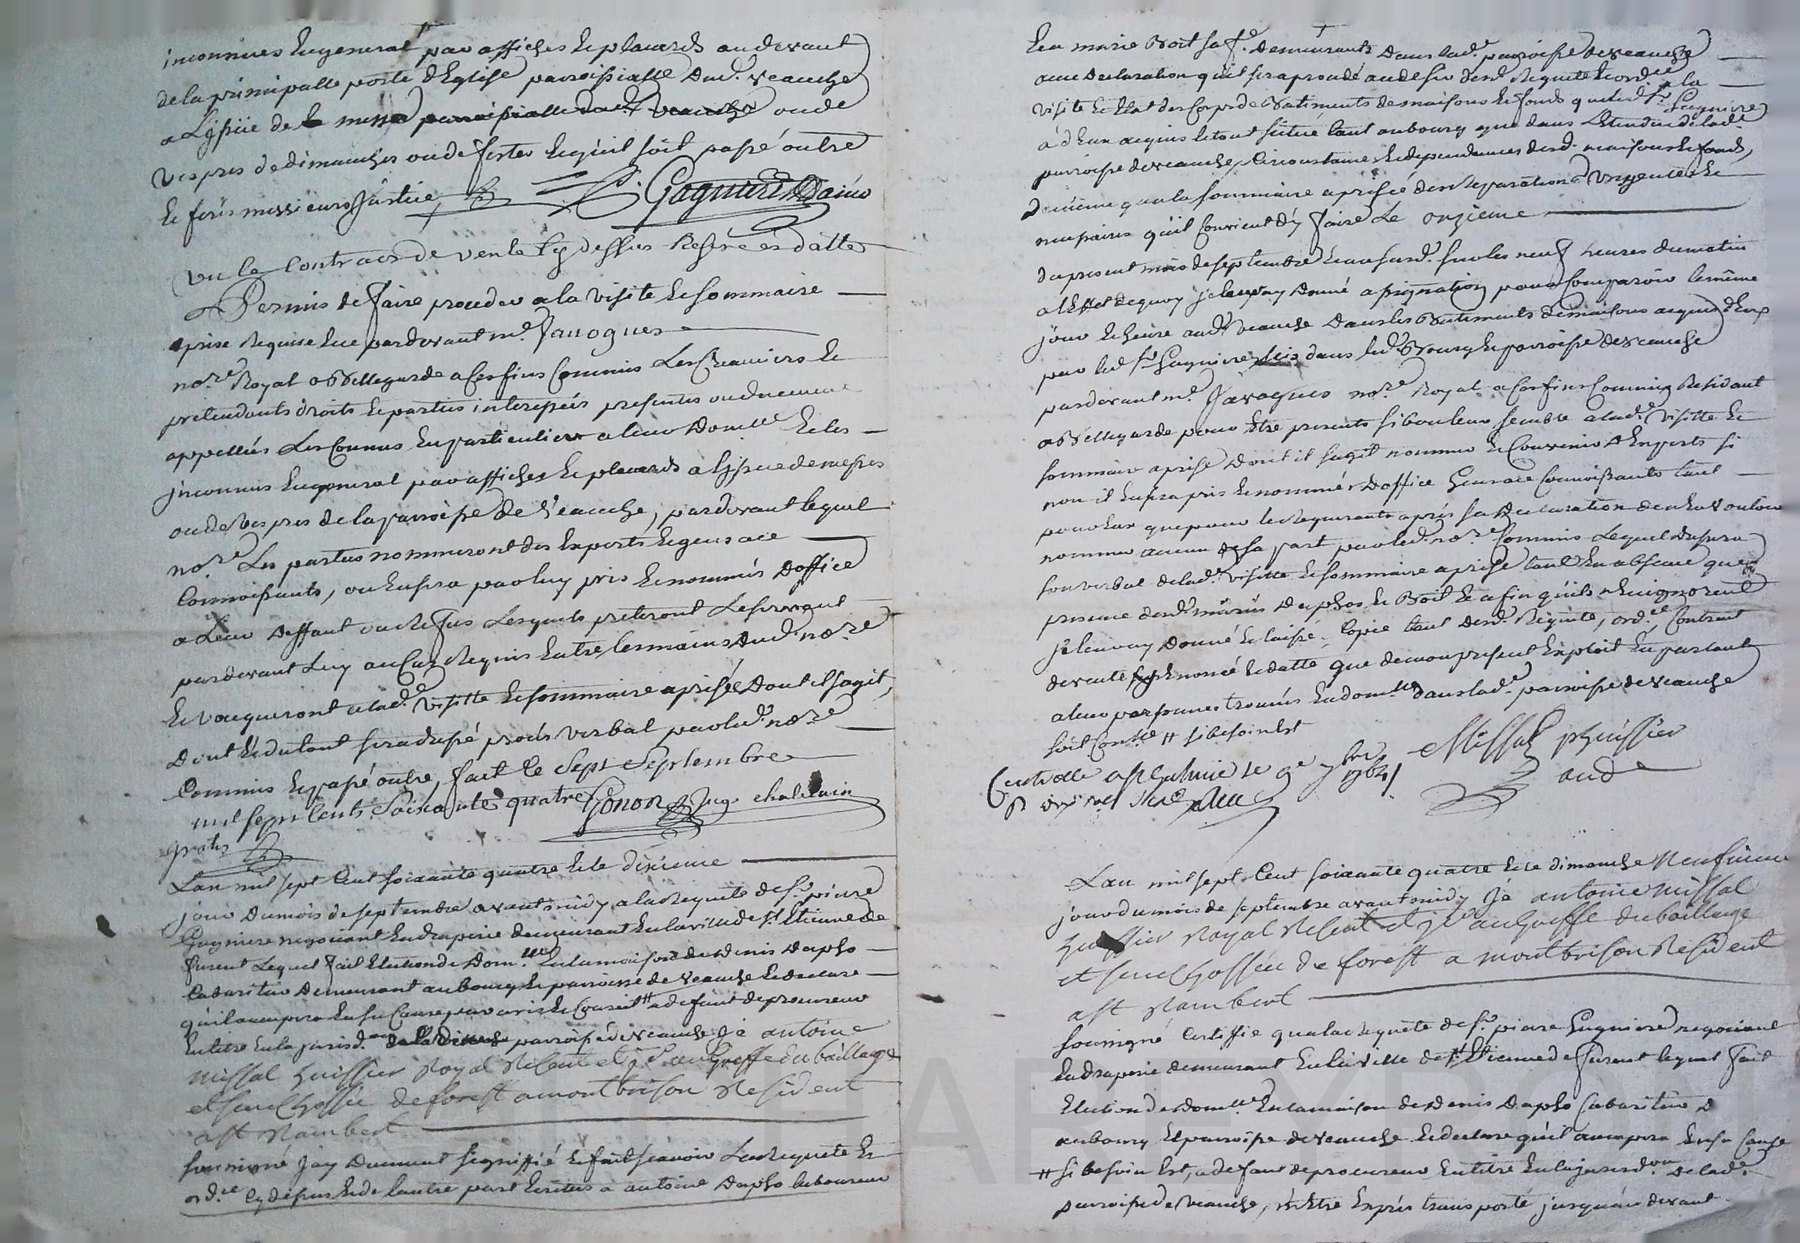 inconnues en general par affiches et placards au devant
de la principalle porte d'Eglise parroissialle dud. Veauche
a l'issüe de la messe parroissialle dud. Veauche ou de
vespres de dimanches ou de festes et qu'il soit passé outre
et ferés messieurs justice
Gagniere
Vu le Contract de vente cy dessus Enoncé et datté
Permis de faire proceder a la visite et sommaire
aprise requise et ce pardevant me. Javogues
nore. Royal a Bellegarde a ces fins Commis Les Creanciers et
pretendants droits et parties interessées presentes ou duement
appellées Les Connus en particulier a leur Domlle et les
inconnus en general par affiches et placards a l'issue de messes
ou de vespres de la parroisse de Veauche, pardevant lequel
nore. Les parties nommeront des Experts et gens a ce
Connoissants, ou en sera par luy pris et nommés D'office
a Leur Deffaut ou Refus Lesquels preteront Le serment
pardevant Luy au Cas Requis entre les mains dud. nore
et vacqueront a lad. visitte et sommaire aprise Dont il s'agit,
Dont et du tout sera dressé procès verbal par led. nore
Commis et passé outre, fait le Sept Septembre
mil sept Cents Soixante quatre Gonon Juge Chatelain
gratis
L'an mil sept Cent soixante quatre et le dixieme
jour du mois de septembre avant midy a la Requete de sr. pierre
Gagniere negociant en draperie demeurant en la ville de St. Etienne de
furent Lequel fait Election de Domlle en la maison de Denis Dapho
Cabaritier Demeurant au bourg et parroisse de Veauche et declare
qu'il occupera en sa Cause par avis et Conseil # a defaut de procureur
en titre en la jurisdon. parroisse de Veauche Je antoine
missal huissier Royal Resent et jré au Greffe du baillage
et senechossée de forest a montbrison Resident
a st Rambert
soussigné Jay Duement signiffié et fait scavoir La Requete et
ordce cy dessus et de l'autre part Ecrites a antoine Dapho laboureur
et a marie Boit sa fe. Demeurants Dans lad. parroisse de Veauche
avec Declaration qu'il sera procedé au desir desd. Requete et ordce a la
visite et Etat des Corps de Batiments de maisons et fonds que led. sr. Gagniere
a d'Eux acquis le tout situé tant au bourg que dans L'Etendue de lad.
parroisse de Veauche, Circonstances et dependances desd. maisons et fonds,
De même qu'a la sommaire aprise des Reparations Urgentes et
necessaires qu'il Convient d'y faire Le onzieme
du present mois de septembre a Veauche sur les neuf heures du matin
a l'Effet de quoy je leur ay Donné assignation pour Comparoir le même
jour et heure aud. Veauche Dans les Batiments de maisons acquis d'Eux
par led. sr. Gagniere dans led. Bourg et parroisse de Veauche
pardevant me. Javogues nore. Royal a Ces fins Commis Resident
a Bellegarde pour Etre presents si bon leur semble a lad. visitte et
sommaire aprise Dont il s'agit nommer et Convenir d'Experts si
non il en sera pris et nommés D'office Gens a ce Connoissants tant
pour Eux que pour le Requerant après sa Declaration de n'En vouloir
nommer aucun de sa part par led. nore Commis Lequel Dressera
son verbal de lad. visitte et sommaire aprise tant en absence que
presence desd. mariés Dapho et Boit et afin qu'ils n'En ignorent
je leur ay Donné et laissé Copie tant desd. Requete, ordce, Contract
de vente sus Enoncé et datté que de mon present Exploit en parlant
a leurs personnes trouvés en domlle dans lad. parroisse de Veauche
soit Conlle # si besoin Est
Missal huissier
Controllé a St Galmier le 9e 7bre 1764
aud.
L'an mil sept Cent soixante quatre et le dimanche Neufvieme
jour du mois de septembre avant midy Je antoine missal
huissier Royal Resent et jré au Greffe du baillage
et senechossée de forest a montbrison Resident
a st Rambert
soussigné Certiffie qu'a la requete de sr. pierre Gagniere negociant
en draperie demeurant en la ville de st Etienne de furent lequel fait
Election de domlle en la maison de Denis Dapho Cabaritier
au bourg et parroisse de Veauche et declare qu'il occupera en sa Cause
# si besoin Est, a defaut de procureur en titre en la jurisdon de lad.
parroisse de Veauche, m'Etre Exprès transporté jusqu'au devant
CHAREYRON